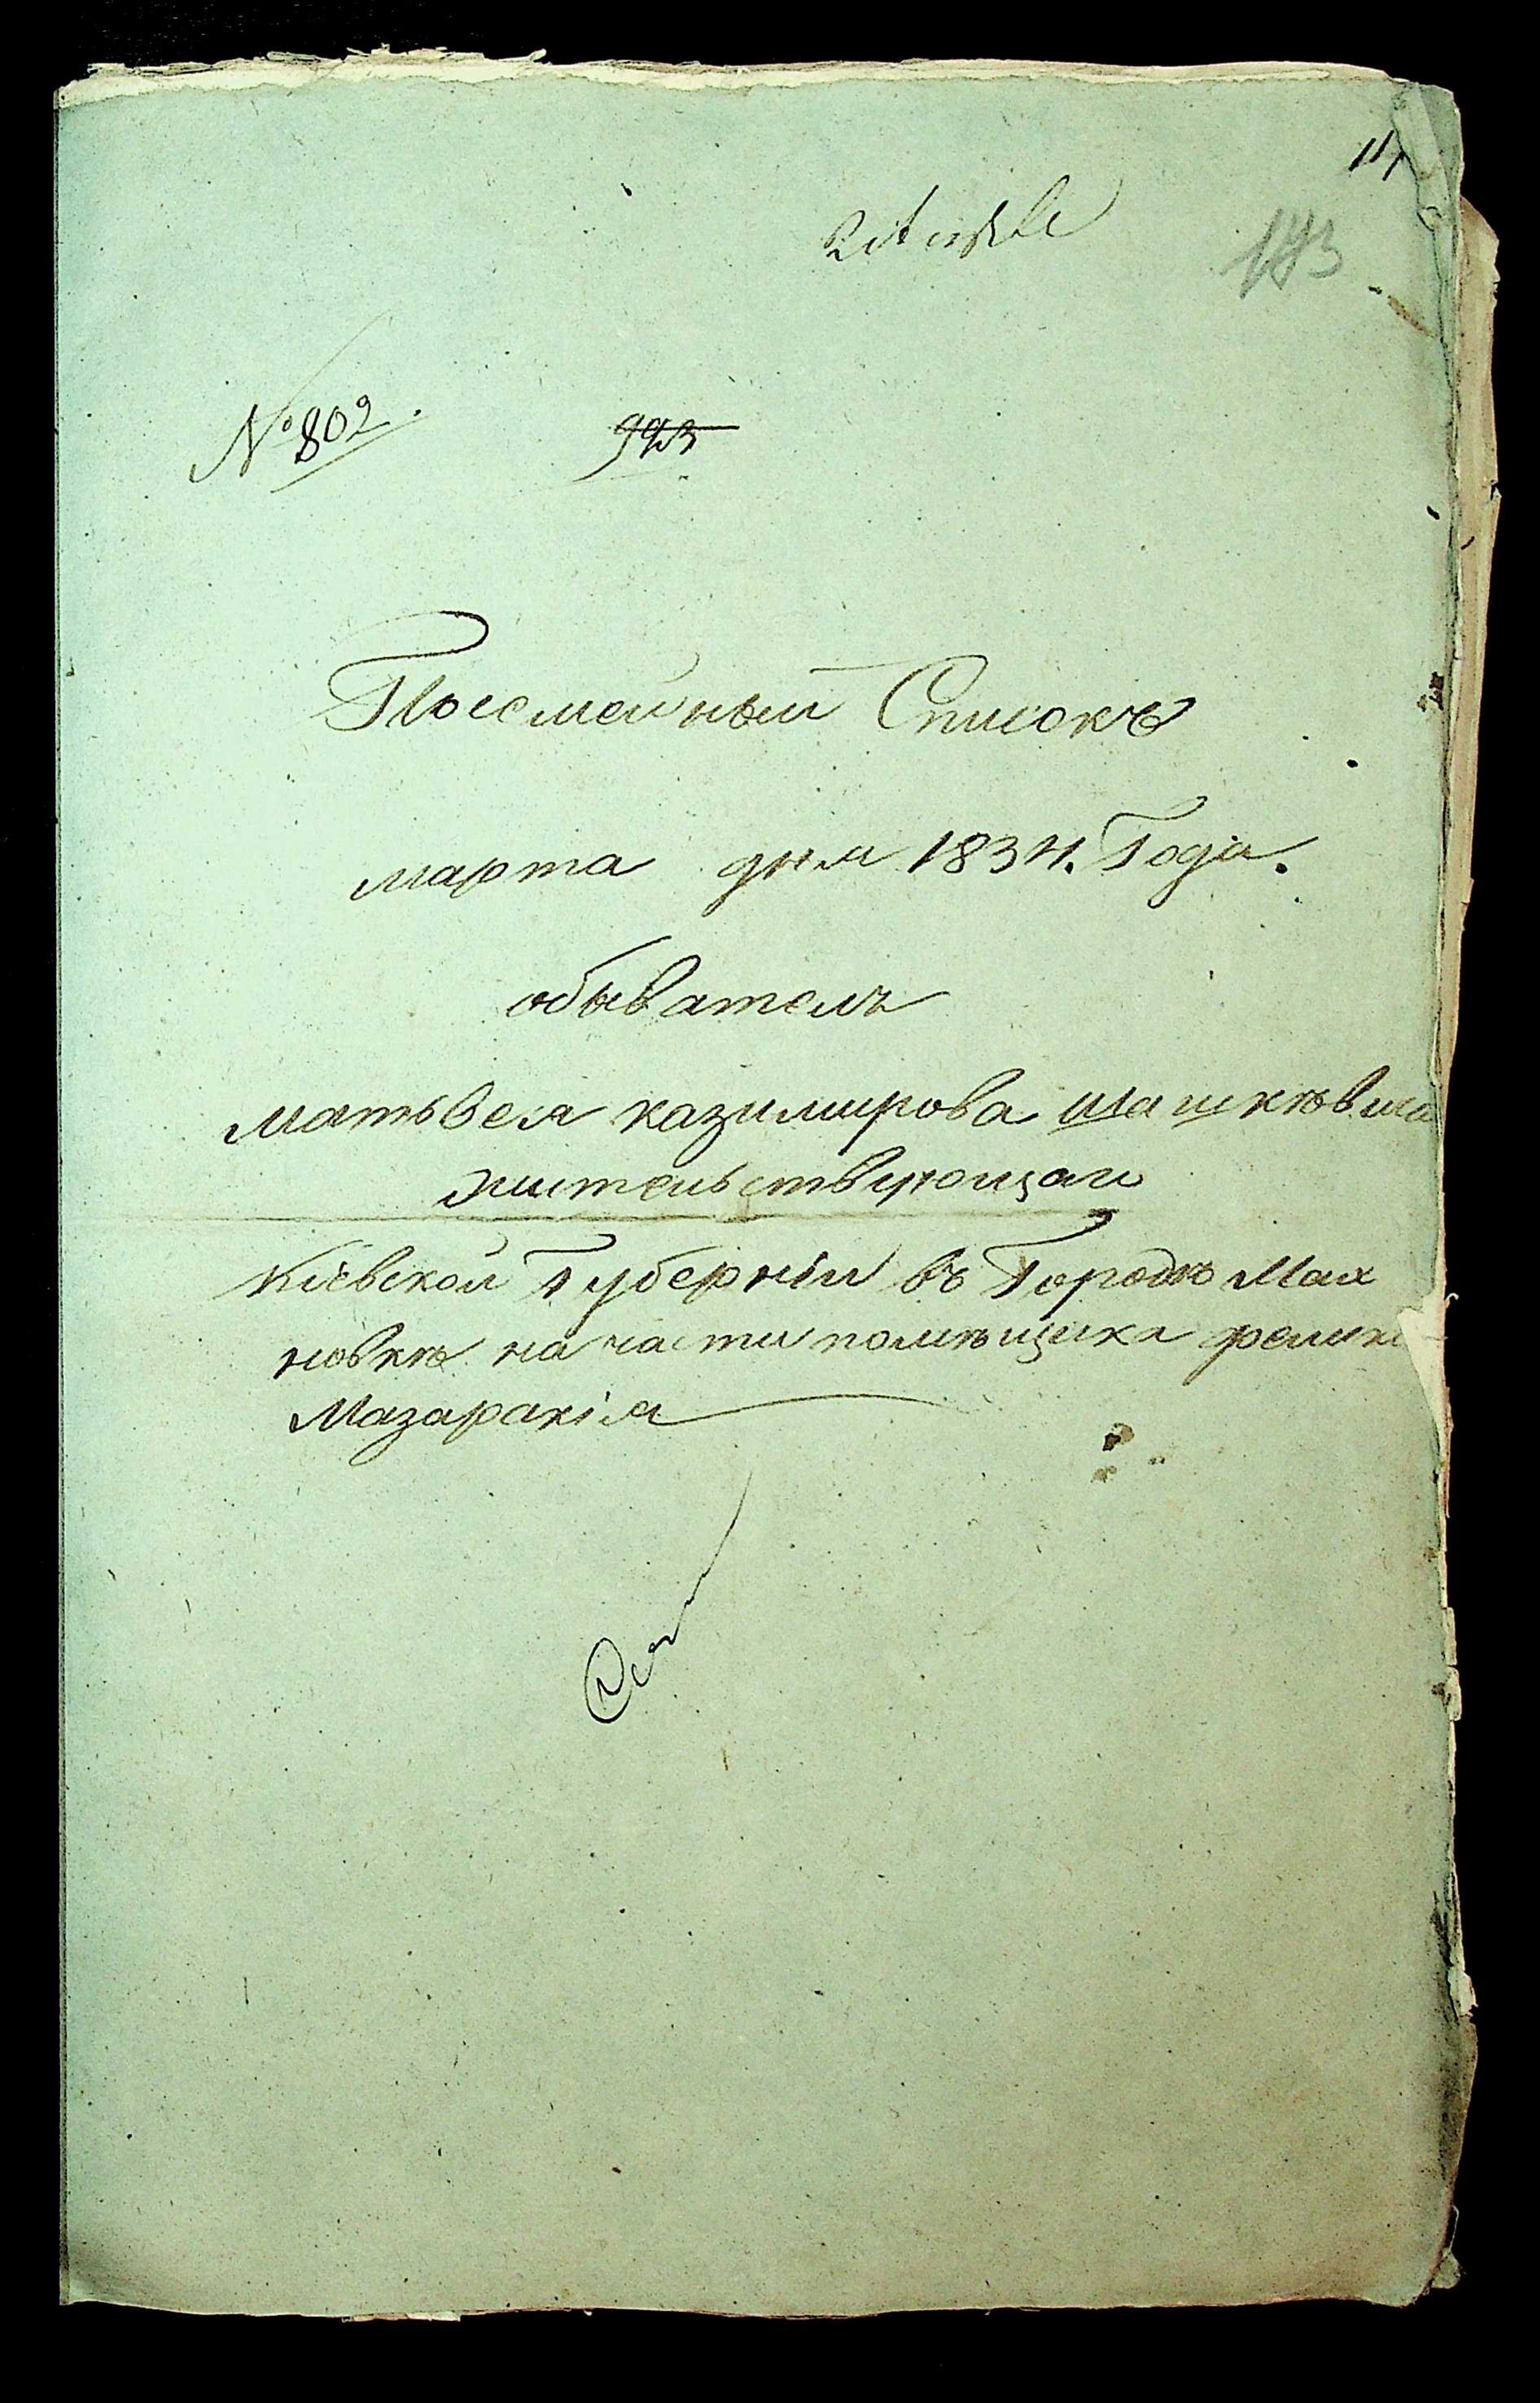 193
№ 802.
993
Посемейный Списокъ
марта дня 1834. Года.
обыватель
матьвея казимирова шашкѣвича
жительствующаи
Кіевской Губерніи въ Городкѣ Мах
новкѣ на части помѣщика феликс
Мазаракія